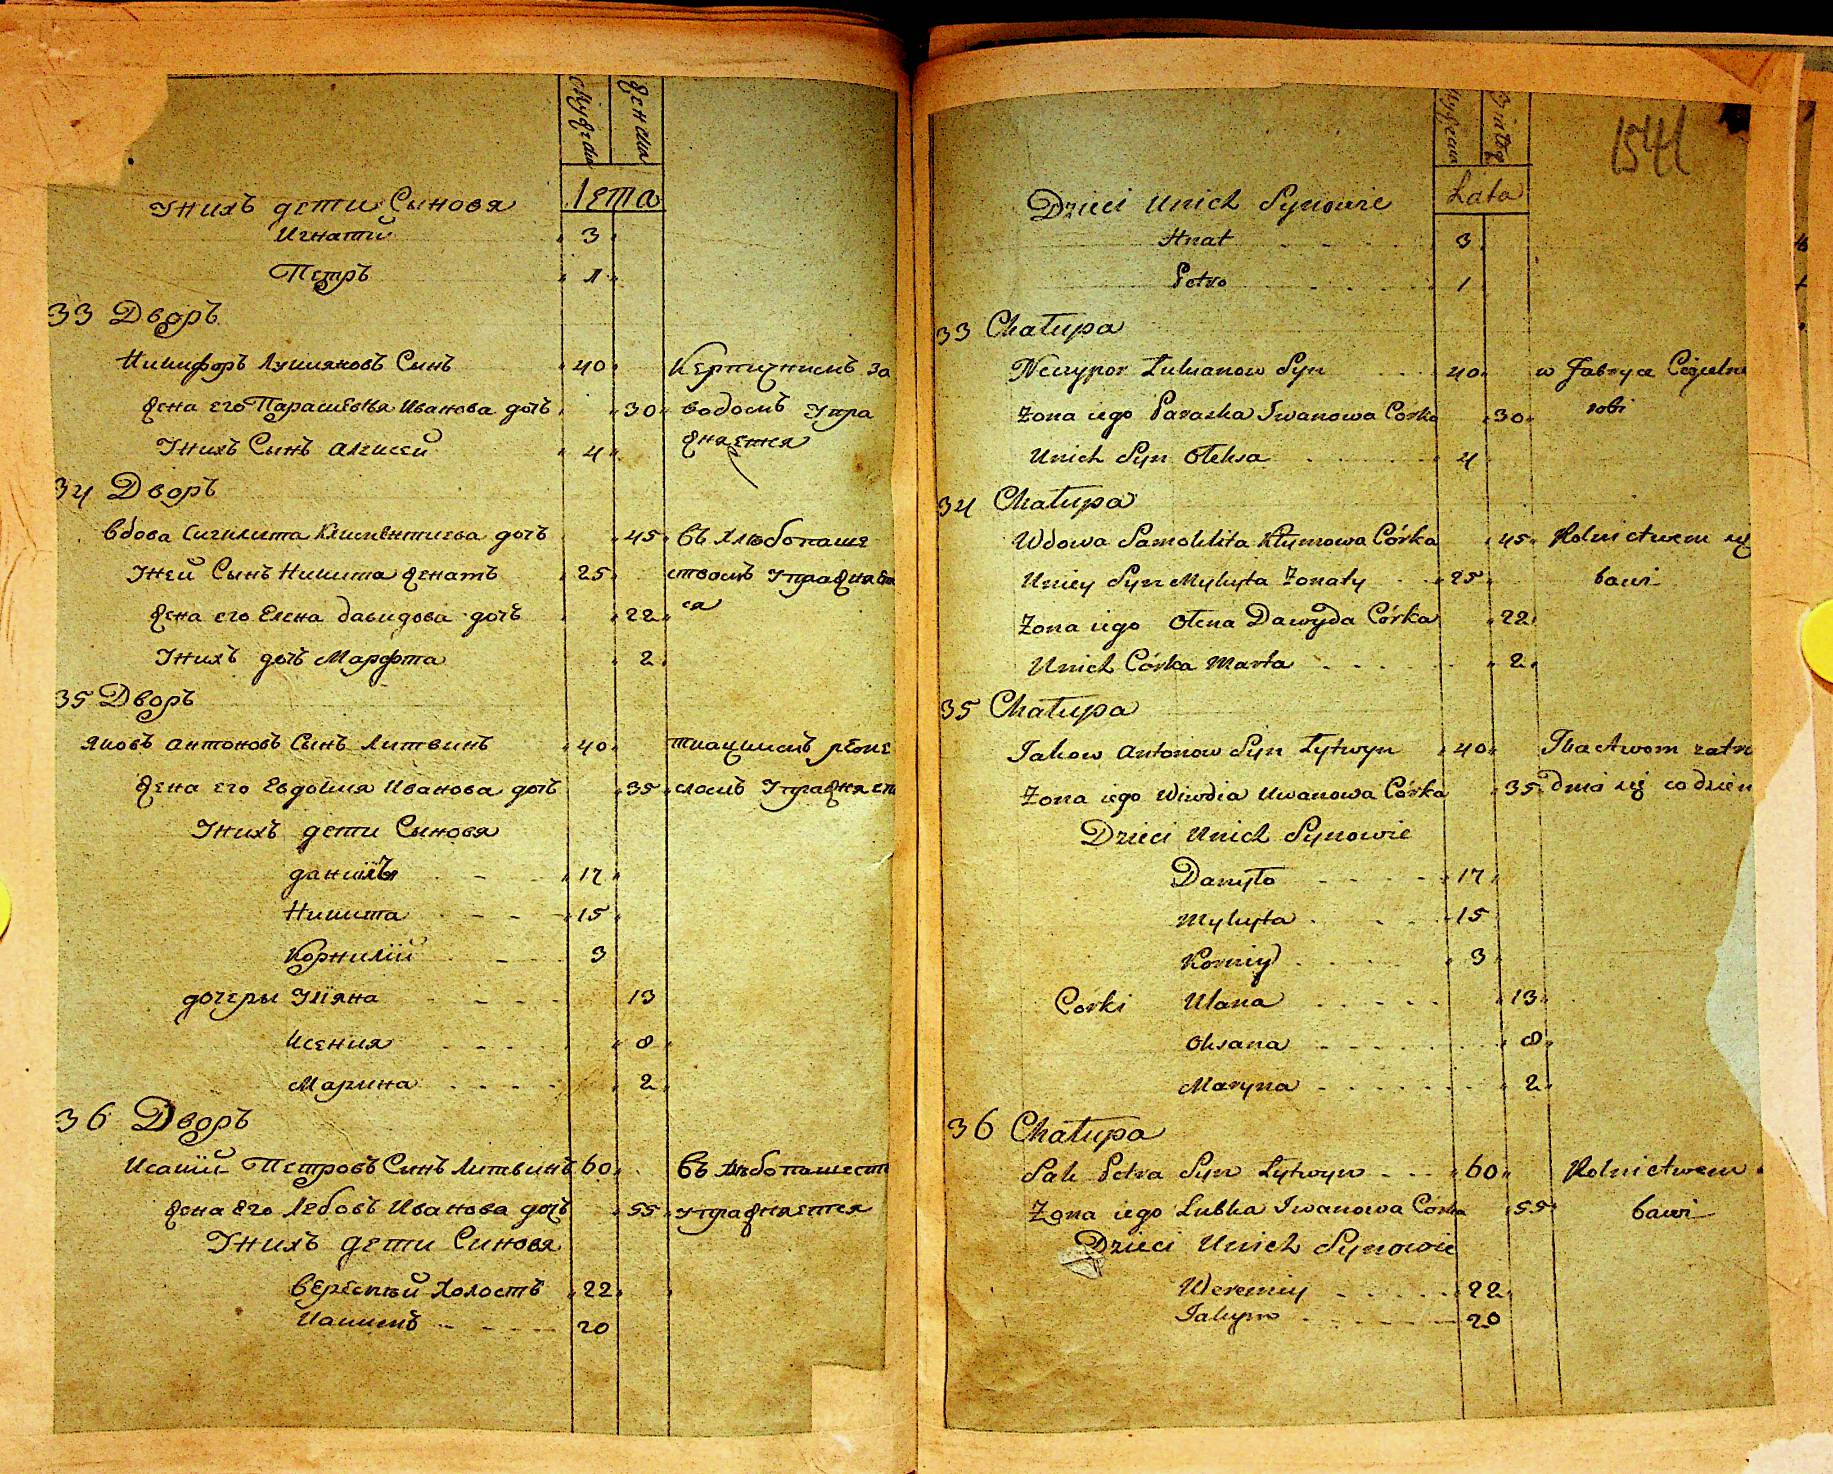 Мужеска
Женска
Лета
Унихъ дети Сыновя
Игнатій 3
Петръ 1
33 Дворъ
Никифоръ Лукияновъ Сынъ 40 Керпичнимъ за
Жена его Парасковья Иванова дочъ 30 водомъ Упра
Унихъ Сынъ Алексей 4 жняется
34 Дворъ
Вдова Климентиева дочъ 45 въ Хлѣбопаше
Уней Сынъ Никита женатъ 25 ствомъ Упражняет
Жена его Елена Давидова дочъ 22 ся
Унихъ дочъ Марфта 2
35 Дворъ
Яковъ Антоновъ Сынъ Литвинъ 40 ткацкимъ реме
Жена его Евдокия Иванова дочъ 35 сломъ Упражняет
Унихъ дети Сыновя
Данііль 17
Никита 15
Корнилій 3
дочеры Уляна 13
Ксения 8
Марина 2
36 Дворъ
Исакій Петровъ Сынъ Литвинъ 60 Въ Хлѣбопашест
Жена Его Лебовъ Иванова дочъ 55 упражняется
Унихъ дети Синовя
Веремѣй Холостъ 22
Иакимъ 20
1541
Łata
Dzieci Unich Synowie
Hnat 3
Petro 1
33 Chałupa
Neczypor Łukianow Syn 40 w Fabryce Cegielni
Żona iego Paraska Iwanowa Córka 30 robi
Unich Syn Ołeksa 4
34 Chałupa
Wdowa Samoklita Kłymowa Córka 45 Rolnictwem się
Uniey Syn Mykyta Żonaty 25 bawi
Żona iego Ołena Dawyda Córka 22
Unich Córka Marta 2
35 Chałupa
Jakow Antonow Syn Łytwyn 40 Tkactwom zatru
Żona iego Wiwdia Uwanowa Córka 35 dnia się codzien
Dzieci Unich Synowie
Danyło 17
Mykyta 15
Korniy 3
Corki Ulana 13
Oksana 8
Maryna 2
36 Chałupa
Sak Petra Syn Łytwyn 60 Rolnictwem
Żona iego Lubka Iwanowa Corka 55 bawi
Dzieci Unich Synowie
Weremiy 22
Jakym 20